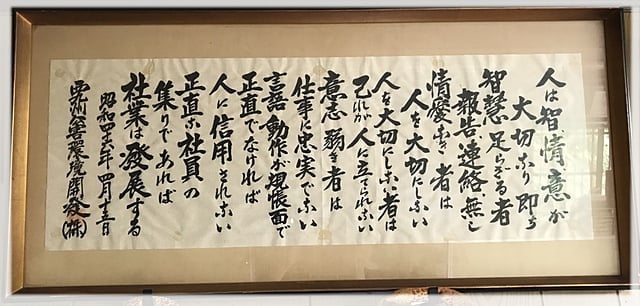 人は智情意が
大切なり即ち
智慧足らざる者
報告連絡無し
情愛なき者は
人を大切にしない
人を大切にしない者は
己れが人に立てられない
意志弱き者は
仕事に忠実でない
言語動作が規帳面で
正直でなければ
人に信用されない
正直な社員の
集りであれば
社業は發展する
昭和 年 四月 日
公害環境開發(株)